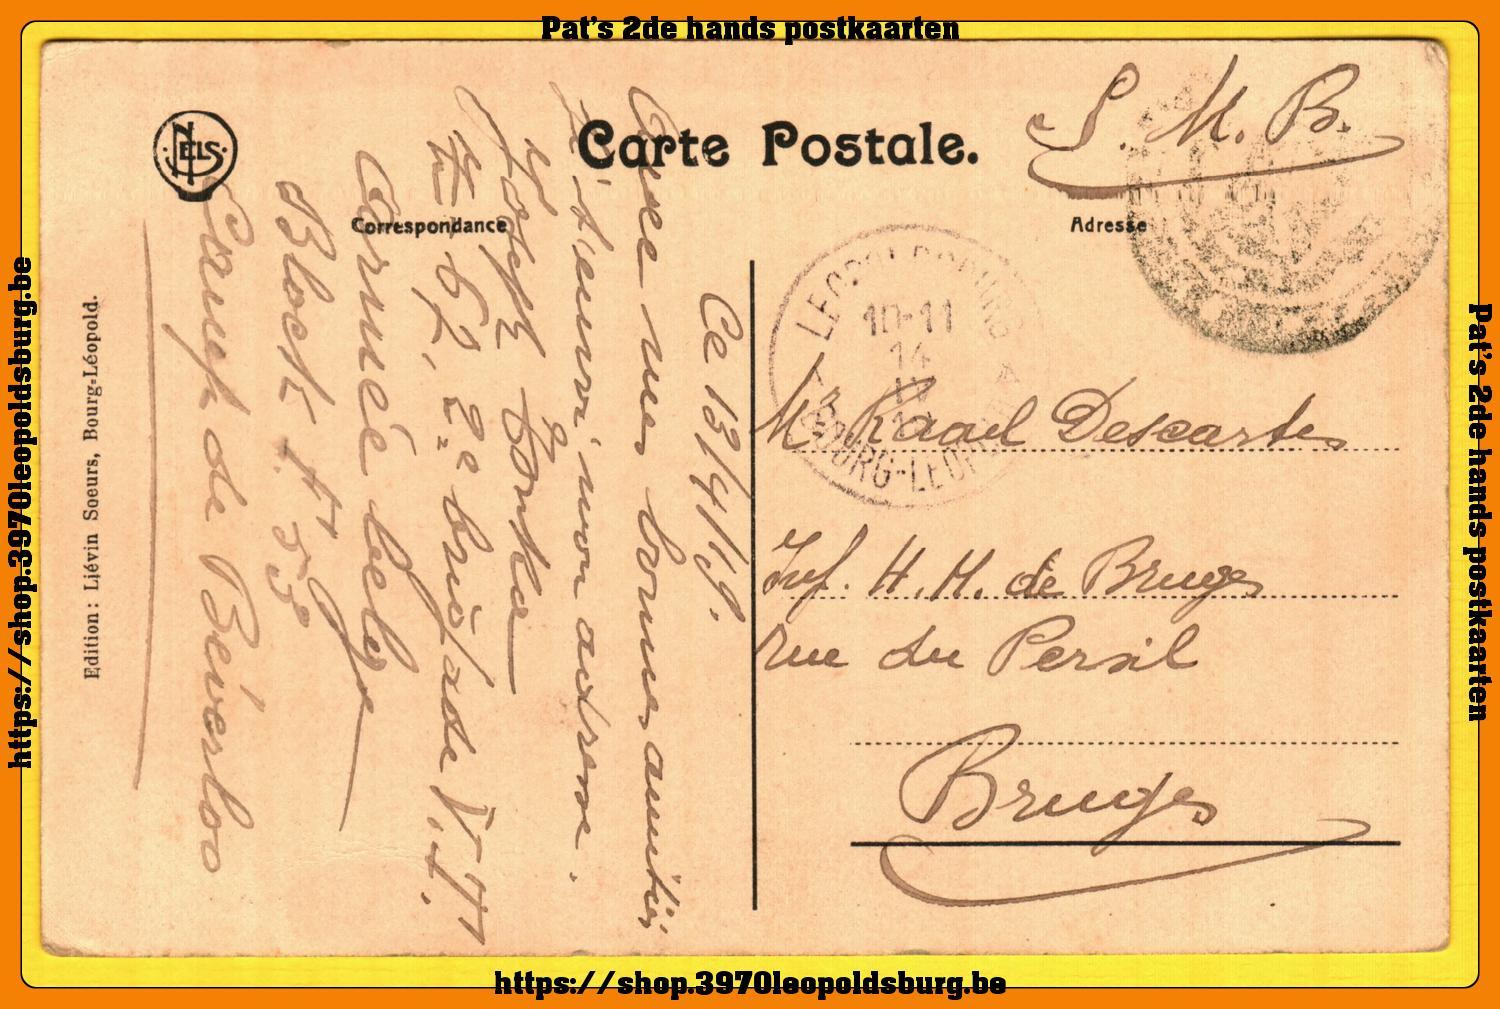 Pat's 2de hands postkaarten
https://shop.3970leopoldsburg.be
Pat's 2de hands postkaarten
https://shop.3970leopoldsburg.be
NELS
Carte Postale.
Correspondance
Adresse
Edition : Liévin Sœurs, Bourg-Léopold.
S. M. B.
LEOPOLDSBURG
10-11
14
IV
BOURG-LEOPOLD
Mr Raoul Descartes
Inf. H. M. de Bruges
Rue du Persil
Bruges
Ce 13/4/19.
Avec mes bonnes amitiés
je t'envoi mon adresse.
Joseph
62, 2e brigade
Armée belge
Block A 53
Camp de Béverloo